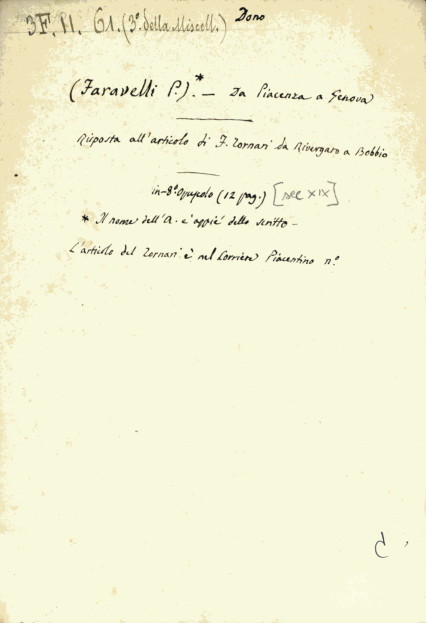 3F. II. 61. (3º. della Miscell.) Dono
(Faravelli P.).* — Da Piacenza a Genova
Risposta all'articolo di F. Tornari da Rivergaro a Bobbio
in-8º. Opuscolo (12 pag.) [sec XIX]
* Il nome dell'A. è appiè dello scritto —
L'articolo del Tornari è nel Corriere Piacentino n.º